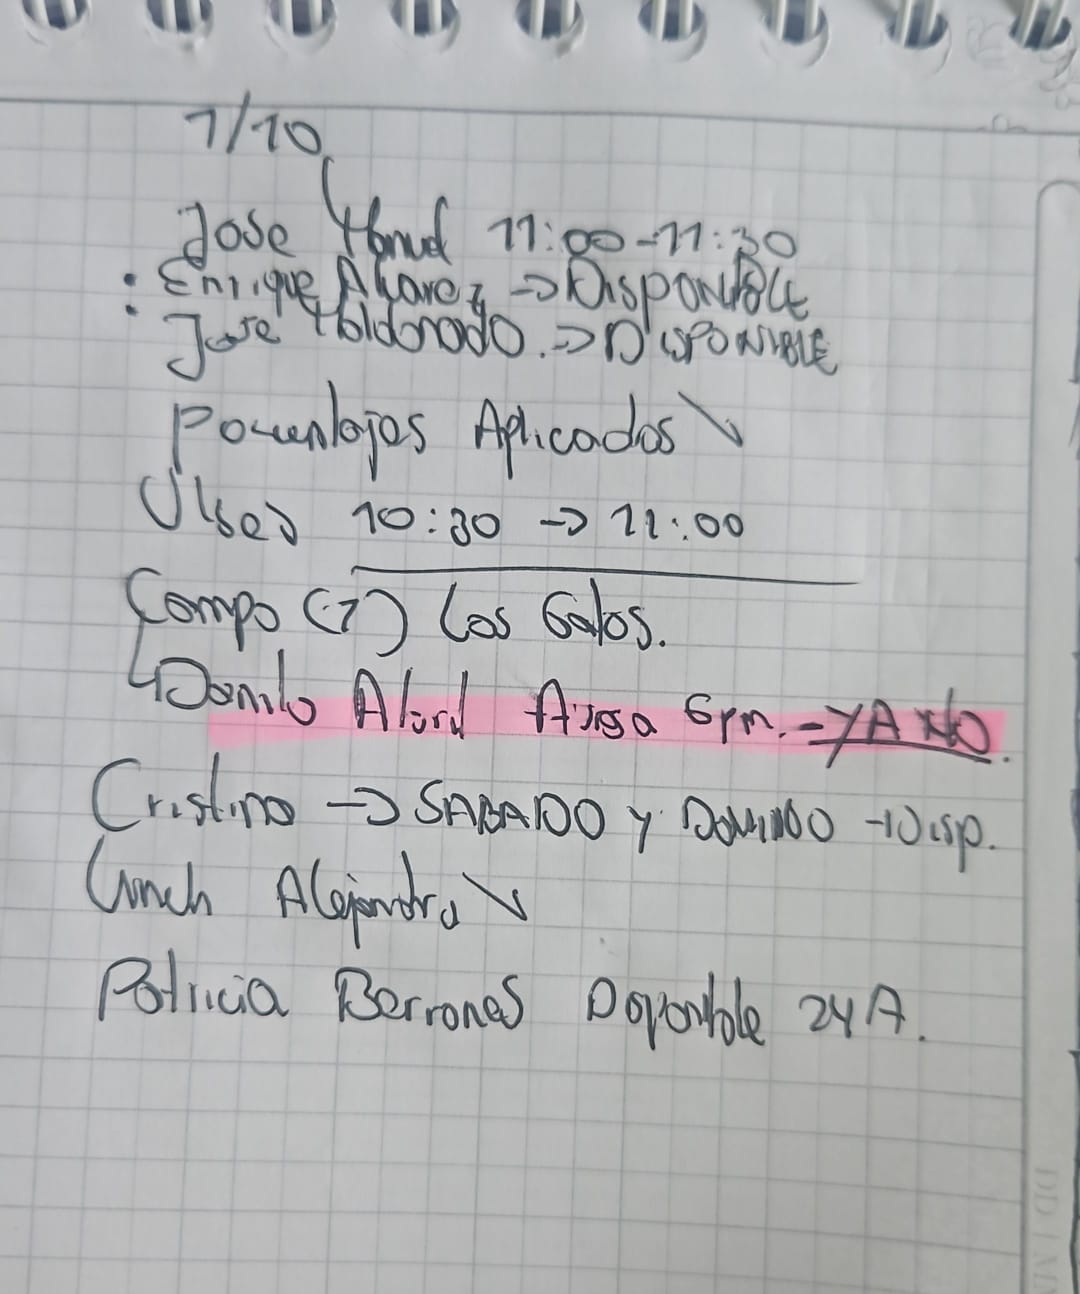 1/10
Jose Manuel 11:00-11:30
: Enrique Alvarez → Disponible
Jose Maldonado. → DISPONIBLE
Porcentajes Aplicados ✓
Ulises 10:30 → 11:00
Campo (7) Los Gatos.
↳ Danilo Avisa 6 pm. - YA NO.
Cristina → SABADO y DOMINGO → Disp.
Lunch Alejandra ✓
Patricia Berrones Disponible 24 A.